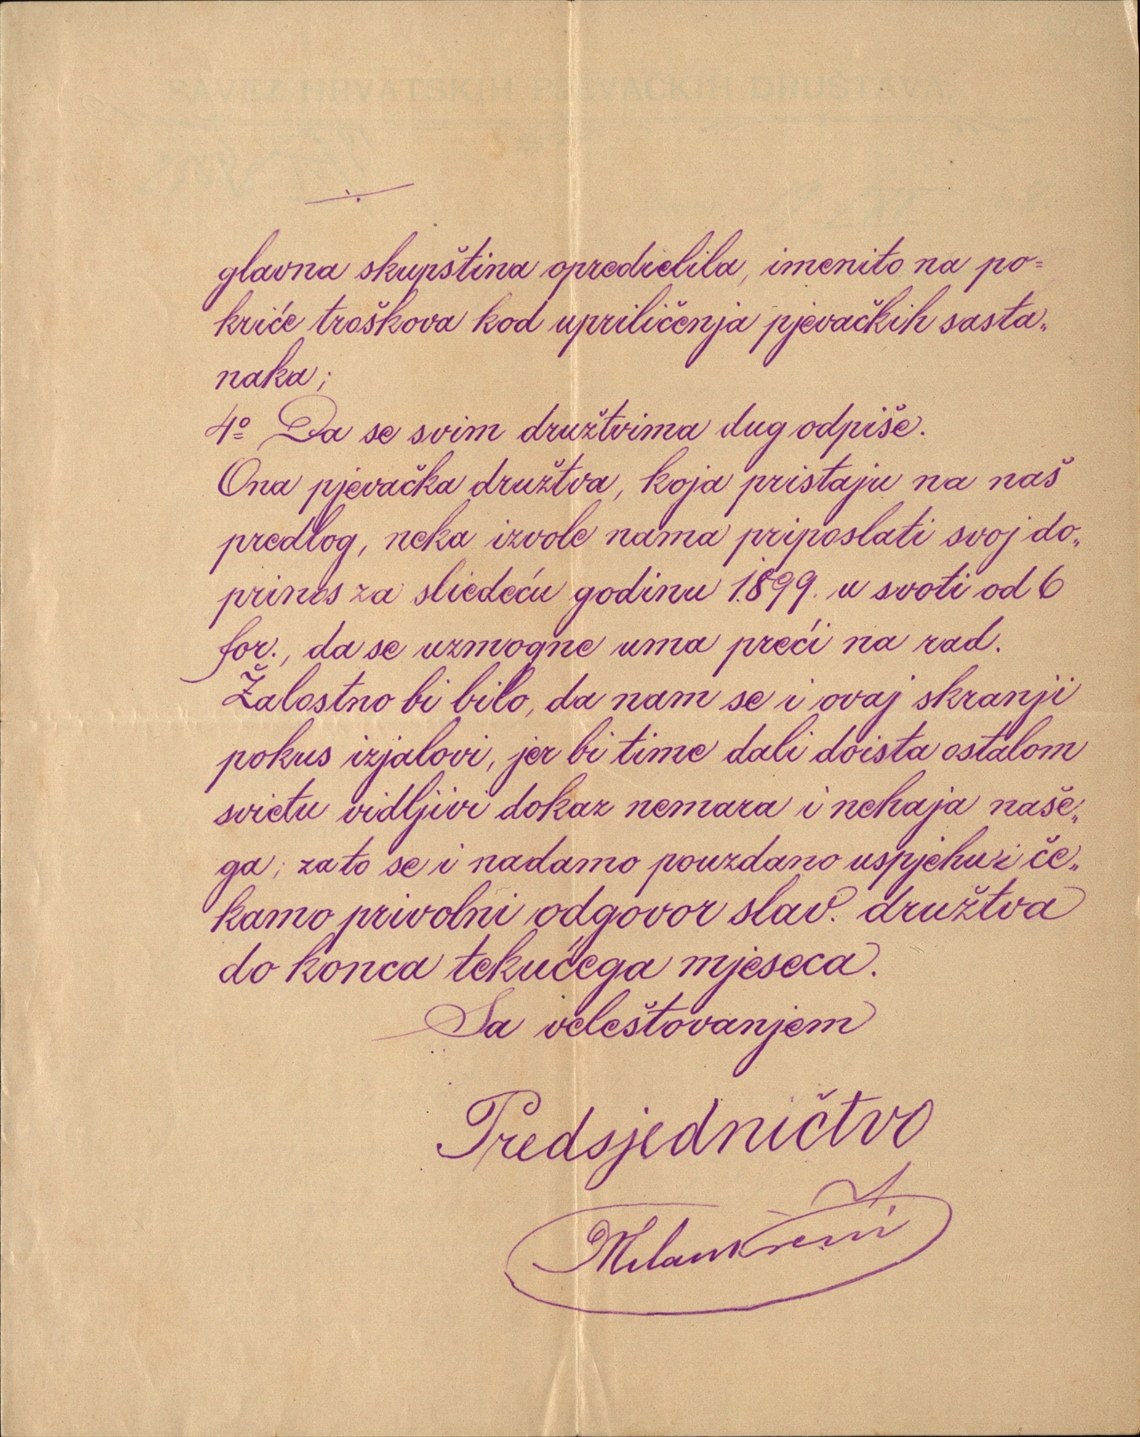 SAVEZ HRVATSKIH PJEVAČKIH DRUŠTAVA
glavna skupština opredielila, imenito na po=
kriće troškova kod upriličenja pjevačkih sasta„
naka;
4º Da se svim družtvima dug odpiše.
Ona pjevačka družtva, koja pristaju na naš
predlog, neka izvole nama priposlati svoj do„
prinos za sliedeću godinu 1899. u svoti od 6
for., da se uzmogne uma preći na rad.
Žalostno bi bilo, da nam se i ovaj skranji
pokus izjalovi, jer bi time dali doista ostalom
svietu vidljivi dokaz nemara i nehaja naše„
ga; zato se i nadamo pouzdano uspjehu i če„
kamo privolni odgovor slav. družtva
do konca tekućega mjeseca.
Sa veleštovanjem
Predsjedničtvo
Milan